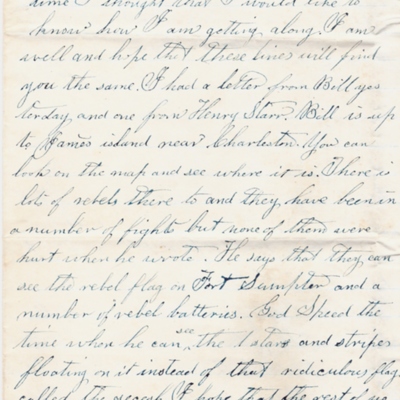 time I thought that I would like to
know how I am getting along. I am
well and hope that these lines will find
you the same. I had a letter from Bill yes
terday, and one from Henry Starr. Bill is up
to James island near Charleston. You can
look on the map and see where it is. There is
lots of rebels there to and they have been in
a number of fights but none of them were
hurt when he wrote. He says that they can
see the rebel flag on Fort Sumpter and a
number of rebel batteries. God Speed the
time when he can see the stars and stripes
floating on it instead of that ridiculous flag
called the secesh I hope that the rest of us